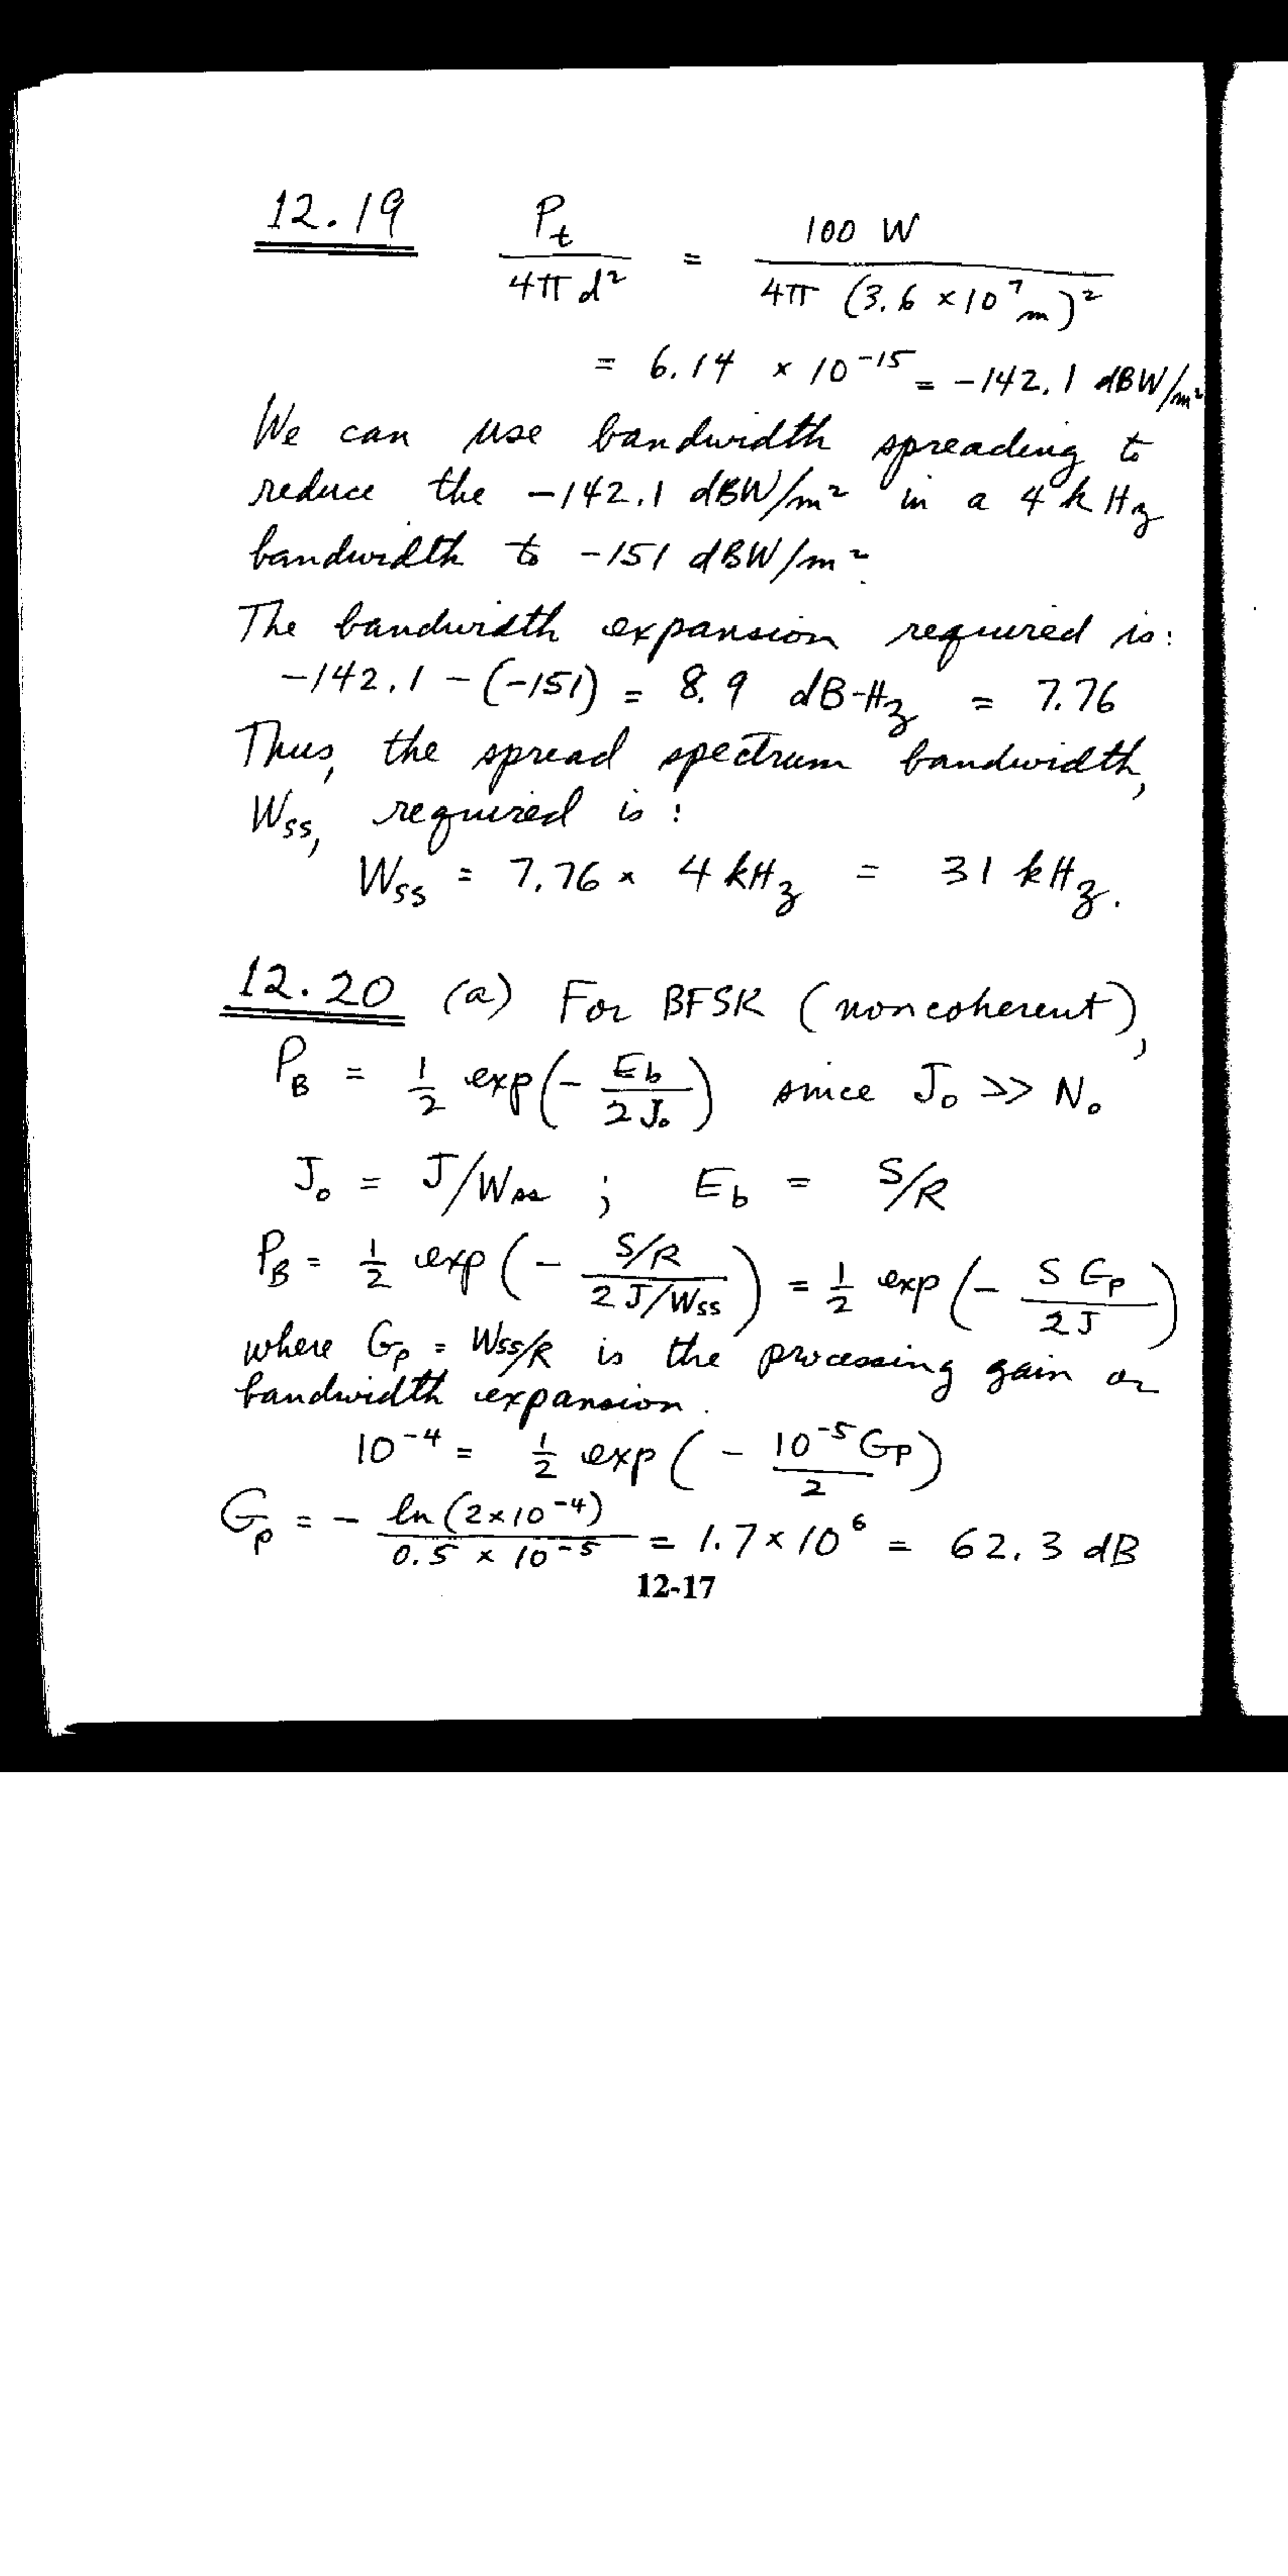 12.19 P_t / 4π d² = 100 W / 4π (3.6 × 10⁷ m)²
= 6.14 × 10⁻¹⁵ = -142.1 dBW/m²
We can use bandwidth spreading to
reduce the -142.1 dBW/m² in a 4 kHz
bandwidth to -151 dBW/m².
The bandwidth expansion required is:
-142.1 - (-151) = 8.9 dB-Hz = 7.76
Thus, the spread spectrum bandwidth,
Wss, required is:
Wss = 7.76 × 4 kHz = 31 kHz.
12.20 (a) For BFSK (noncoherent),
P_B = 1/2 exp(- E_b / 2 J₀) since J₀ >> N₀
J₀ = J/Wss ; E_b = S/R
P_B = 1/2 exp(- S/R / 2 J/Wss) = 1/2 exp(- S G_p / 2 J)
where G_p = Wss/R is the processing gain or
bandwidth expansion.
10⁻⁴ = 1/2 exp(- 10⁻⁵ G_p / 2)
G_p = - ln(2×10⁻⁴) / 0.5 × 10⁻⁵ = 1.7 × 10⁶ = 62.3 dB
12-17